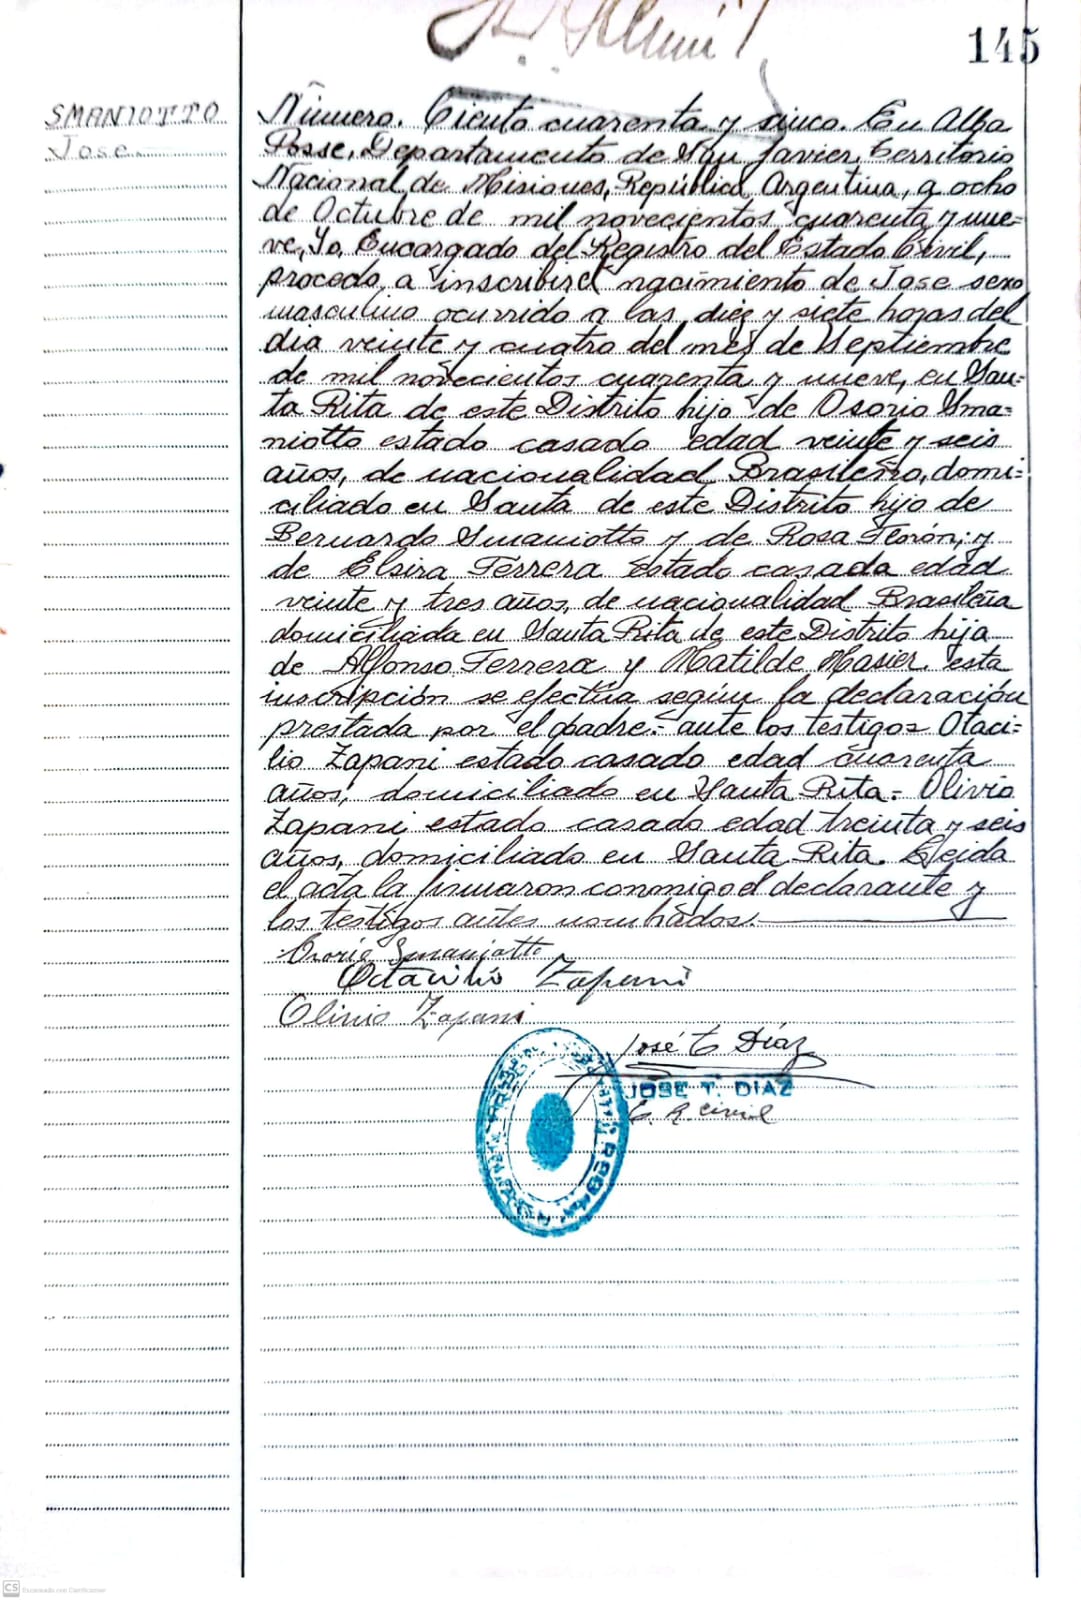 145
SMANIOTTO
Jose.
Número. Ciento cuarenta y cinco. En Alba
Posse, Departamento de San Javier, Territorio
Nacional de Misiones, República Argentina, a ocho
de Octubre de mil novecientos cuarenta y nue=
ve, Yo, Encargado del Registro del Estado Civil,
procedo, a inscribir el nacimiento de Jose sexo
masculino ocurrido a las diez y siete horas del
dia veinte y cuatro del mes de Septiembre
de mil novecientos cuarenta y nueve, en San=
ta Rita de este Distrito hijo de Osorio Sma=
niotto estado casado edad veinte y seis
años, de nacionalidad Brasileño, domi=
ciliado en Santa de este Distrito hijo de
Bernardo Smaniotto y de Rosa; y
de Elsira Ferrera estado casada edad
veinte y tres años, de nacionalidad Brasileña
domiciliada en Santa Rita de este Distrito hija
de Alfonso Ferrera y Matilde Masier. esta
inscripción se efectúa según la declaración
prestada por el padre.- ante los testigos Otaci=
lio Zapani estado casado edad cuarenta
años, domiciliado en Santa Rita.- Olivio
Zapani estado casado edad treinta y seis
años, domiciliado en Santa Rita. Leida
el acta la firmaron conmigo el declarante y
los testigos antes nombrados.
Osorio Smaniotto
Octacilio Zapani
Olivio Zapani
José T Díaz
JOSE T. DIAZ
E. R. Civil
CS Escaneado con CamScanner